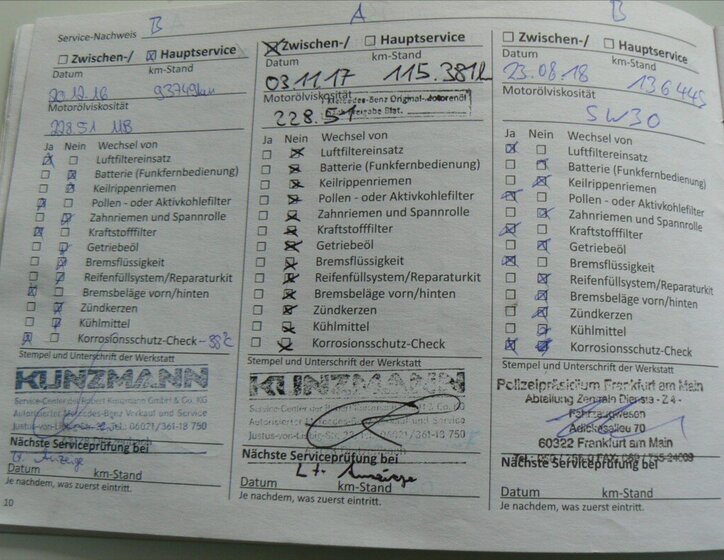 B
Service-Nachweis
Zwischen-/ Hauptservice
Datum km-Stand
20.12.16 93749km
Motorölviskosität
228.51 MB
Ja Nein Wechsel von
Luftfiltereinsatz
Batterie (Funkfernbedienung)
Keilrippenriemen
Pollen - oder Aktivkohlefilter
Zahnriemen und Spannrolle
Kraftstofffilter
Getriebeöl
Bremsflüssigkeit
Reifenfüllsystem/Reparaturkit
Bremsbeläge vorn/hinten
Zündkerzen
Kühlmittel
Korrosionsschutz-Check
Stempel und Unterschrift der Werkstatt
KUNZMANN
Service-Center der Robert Kunzmann GmbH & Co. KG
Autorisierter Mercedes-Benz Verkauf und Service
Justus-von-Liebig-Str. Tel. 06021/361-18 750
Nächste Serviceprüfung bei
Datum km-Stand
Je nachdem, was zuerst eintritt.
10
A
Zwischen-/ Hauptservice
Datum km-Stand
03.11.17 115.381
Motorölviskosität
Mercedes-Benz Original-Motorenöl
228.51
Ja Nein Wechsel von
Luftfiltereinsatz
Batterie (Funkfernbedienung)
Keilrippenriemen
Pollen - oder Aktivkohlefilter
Zahnriemen und Spannrolle
Kraftstofffilter
Getriebeöl
Bremsflüssigkeit
Reifenfüllsystem/Reparaturkit
Bremsbeläge vorn/hinten
Zündkerzen
Kühlmittel
Korrosionsschutz-Check
Stempel und Unterschrift der Werkstatt
KUNZMANN
Service-Center der Robert Kunzmann GmbH & Co. KG
Autorisierter Mercedes-Benz Verkauf und Service
Justus-von-Liebig-Str. Tel. 06021/361-18 750
Nächste Serviceprüfung bei
Lt. Anzeige
Datum km-Stand
Je nachdem, was zuerst eintritt.
B
Zwischen-/ Hauptservice
Datum km-Stand
23.08.18 136445
Motorölviskosität
5W30
Ja Nein Wechsel von
Luftfiltereinsatz
Batterie (Funkfernbedienung)
Keilrippenriemen
Pollen - oder Aktivkohlefilter
Zahnriemen und Spannrolle
Kraftstofffilter
Getriebeöl
Bremsflüssigkeit
Reifenfüllsystem/Reparaturkit
Bremsbeläge vorn/hinten
Zündkerzen
Kühlmittel
Korrosionsschutz-Check
Stempel und Unterschrift der Werkstatt
Polizeipräsidium Frankfurt am Main
Abteilung Zentrale Dienste - Z 4 -
Fahrzeugwesen
Adickesallee 70
60322 Frankfurt am Main
Nächste Serviceprüfung bei
Datum km-Stand
Je nachdem, was zuerst eintritt.